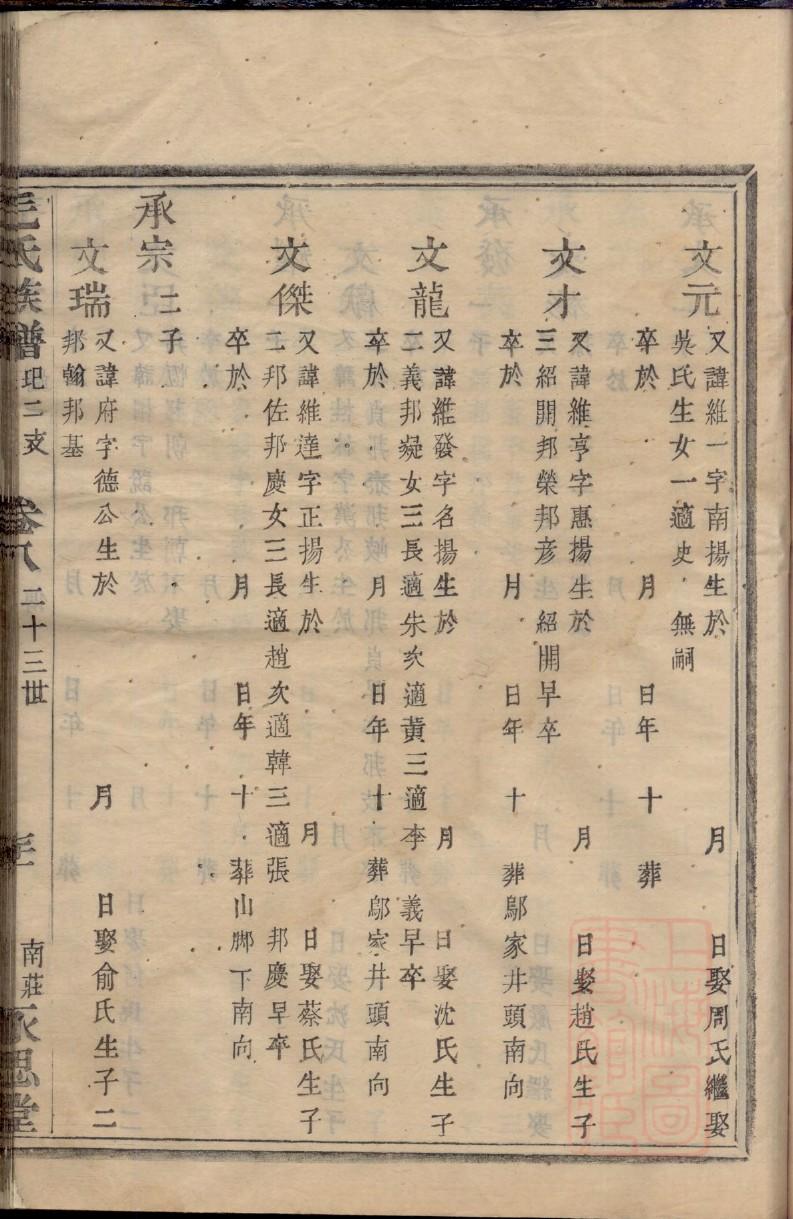 文元 又諱維一字南揚生於 月 日娶周氏繼娶
吳氏生女一適史 無嗣
卒於 月 日年 十 葬
文才 又諱維亨字惠揚生於 月 日娶趙氏生子
三紹開邦榮邦彥 紹開早卒
卒於 月 日年 十 葬鄔家井頭南向
文龍 又諱維發字名揚生於 月 日娶沈氏生子
二義邦凝女三長適朱次適黃三適李 義早卒
卒於 月 日年 十 葬鄔家井頭南向
文傑 又諱維達字正揚生於 月 日娶蔡氏生子
二邦佐邦慶女三長適趙次適韓三適張 邦慶早卒
卒於 月 日年 十 葬山脚下南向
承宗 二子
文瑞 又諱府字德公生於 月 日娶俞氏生子二
邦翰邦基
毛氏族譜 圯二支 卷八 二十三世 南莊 永思堂
上海圖書館臧